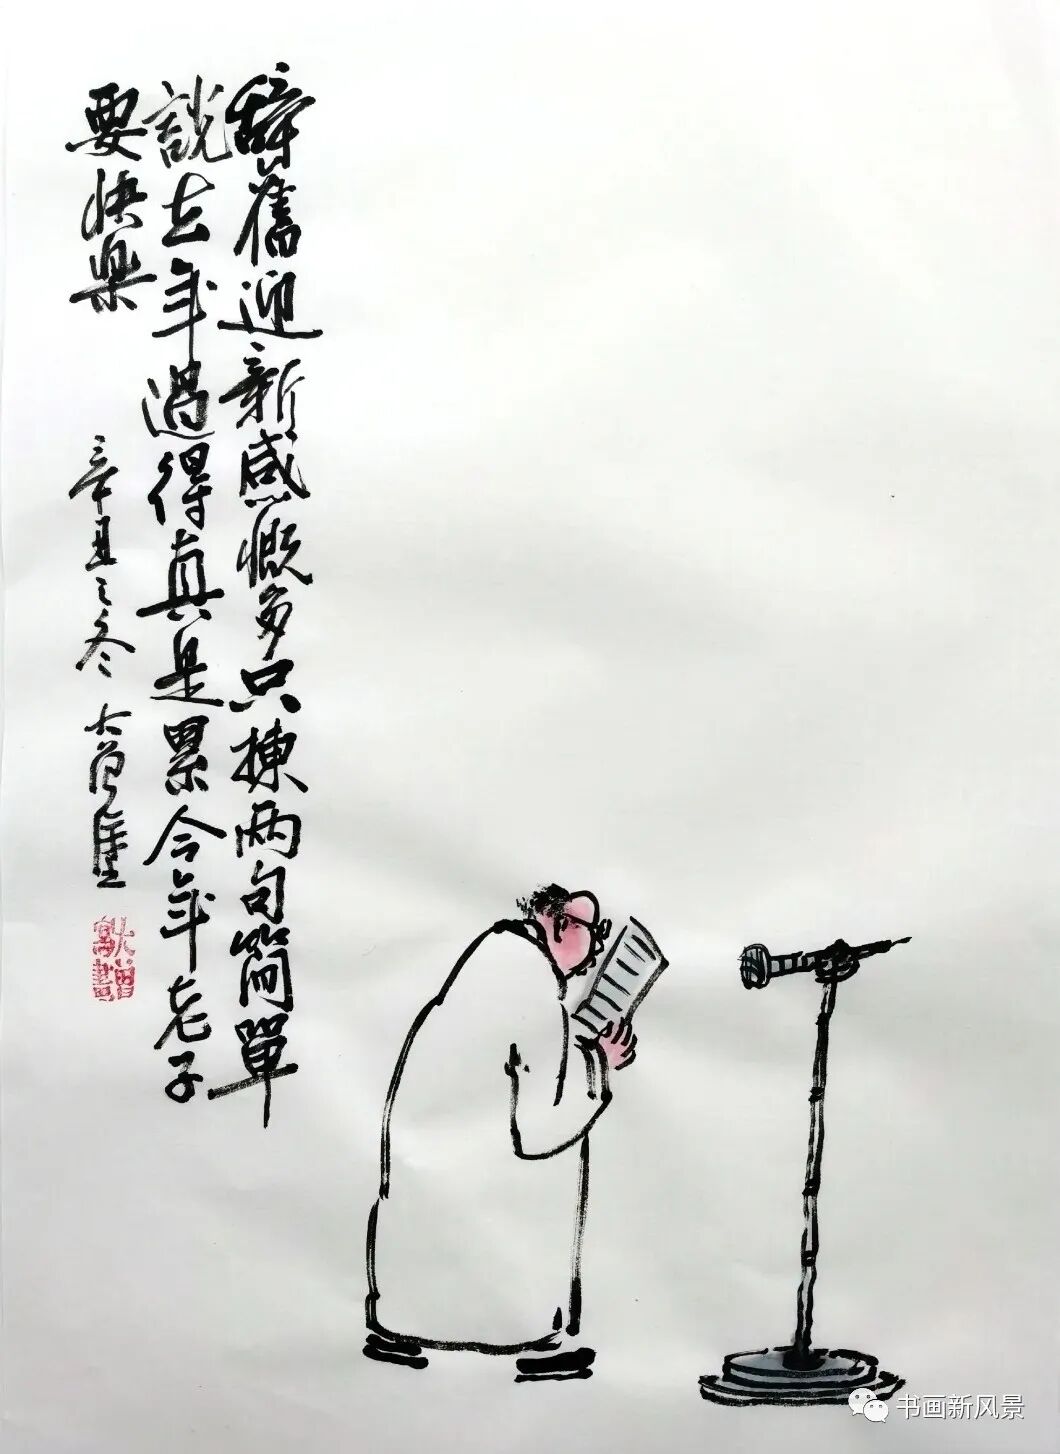 辭舊迎新感慨多只揀两句簡單
說去年過得真是累今年老子
要快樂
辛丑之冬 大曾
大曾
寫畫
书画新风景